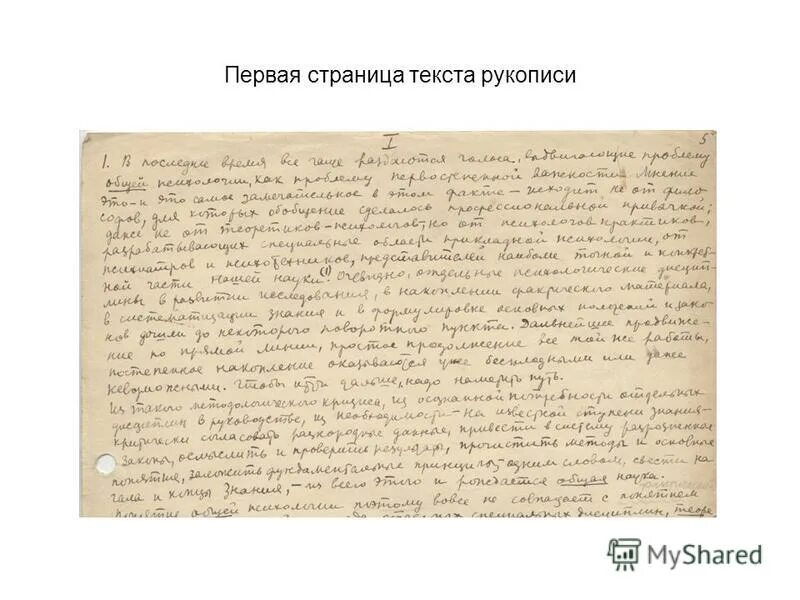 Первая страница текста рукописи
I
5
1. В последнее время все чаще раздаются голоса, выдвигающие проблему
общей психологии, как проблему первостепенной важности. Мнение
это – и это самое замечательное в этом факте – исходит не от фило-
софов, для которых обобщение сделалось профессиональной привычкой;
даже не от теоретиков-психологов, но от психологов практиков,
разрабатывающих специальные области прикладной психологии, от
психиатров и психотехников, представителей наиболее точной и конкрет-
ной части нашей науки (1). Очевидно, отдельные психологические дисцип-
лины в развитии исследования, в накоплении фактического материала,
в систематизации знания и в формулировке основных положений и зако-
нов дошли до некоторого поворотного пункта. Дальнейшее продвиже-
ние по прямой линии, простое продолжение все той же работы,
постепенное накопление оказываются уже бесплодными или даже
невозможными. Чтобы идти дальше, надо наметить путь.
Из такого методологического кризиса, из осознанной потребности отдельных
дисциплин в руководстве, из необходимости – на известной ступени знания –
критически согласовать разнородные данные, привести в систему разрозненные
законы, осмыслить и проверить результаты, прочистить методы и основные
понятия, заложить фундаментальные принципы, одним словом, свести на-
чала и концы знания, – из всего этого и рождается общая наука.
Понятие общей психологии поэтому вовсе не совпадает с понятием
специальных дисциплин, теоре
MyShared